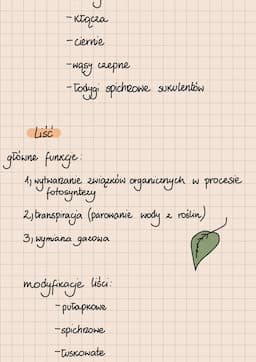 - kłącza
- ciernie
- wąsy czepne
- łodygi spichrzowe sukulentów
liść
główne funkcje:
1) wytwarzanie związków organicznych w procesie
fotosyntezy
2) transpiracja (parowanie wody z roślin)
3) wymiana gazowa
modyfikacje liści:
- pułapkowe
- spichrzowe
- łuskowate